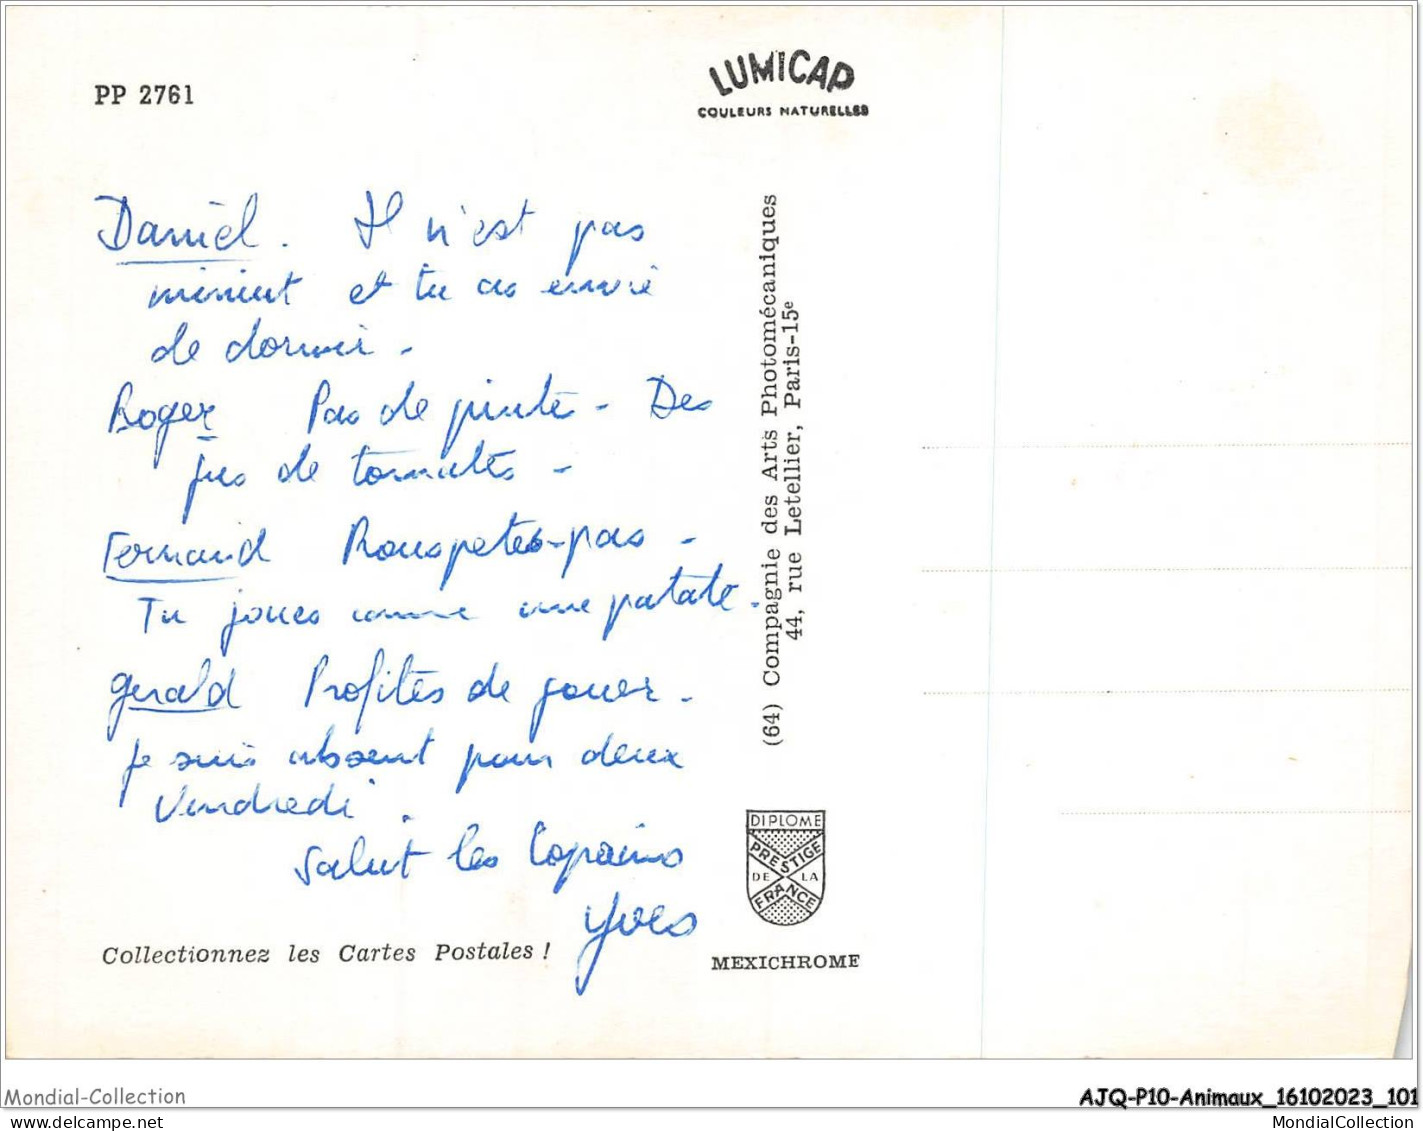 PP 2761
LUMICAP
COULEURS NATURELLES
Daniel. Il n'est pas
minuit et tu as envie
de dormir -
Roger Pas de pinte - Des
jus de tomates -
Fernand Rouspetes-pas -
Tu joues comme une patate.
Gerald Profites de jouer -
Je suis absent pour deux
Vendredi.
Salut les Copains
Yves
(64) Compagnie des Arts Photomécaniques
44, rue Letellier, Paris-15e
DIPLOME
PRESTIGE
DE LA
FRANCE
Collectionnez les Cartes Postales !
MEXICHROME
Mondial-Collection
AJQ-P10-Animaux_16102023_101
MondialCollection